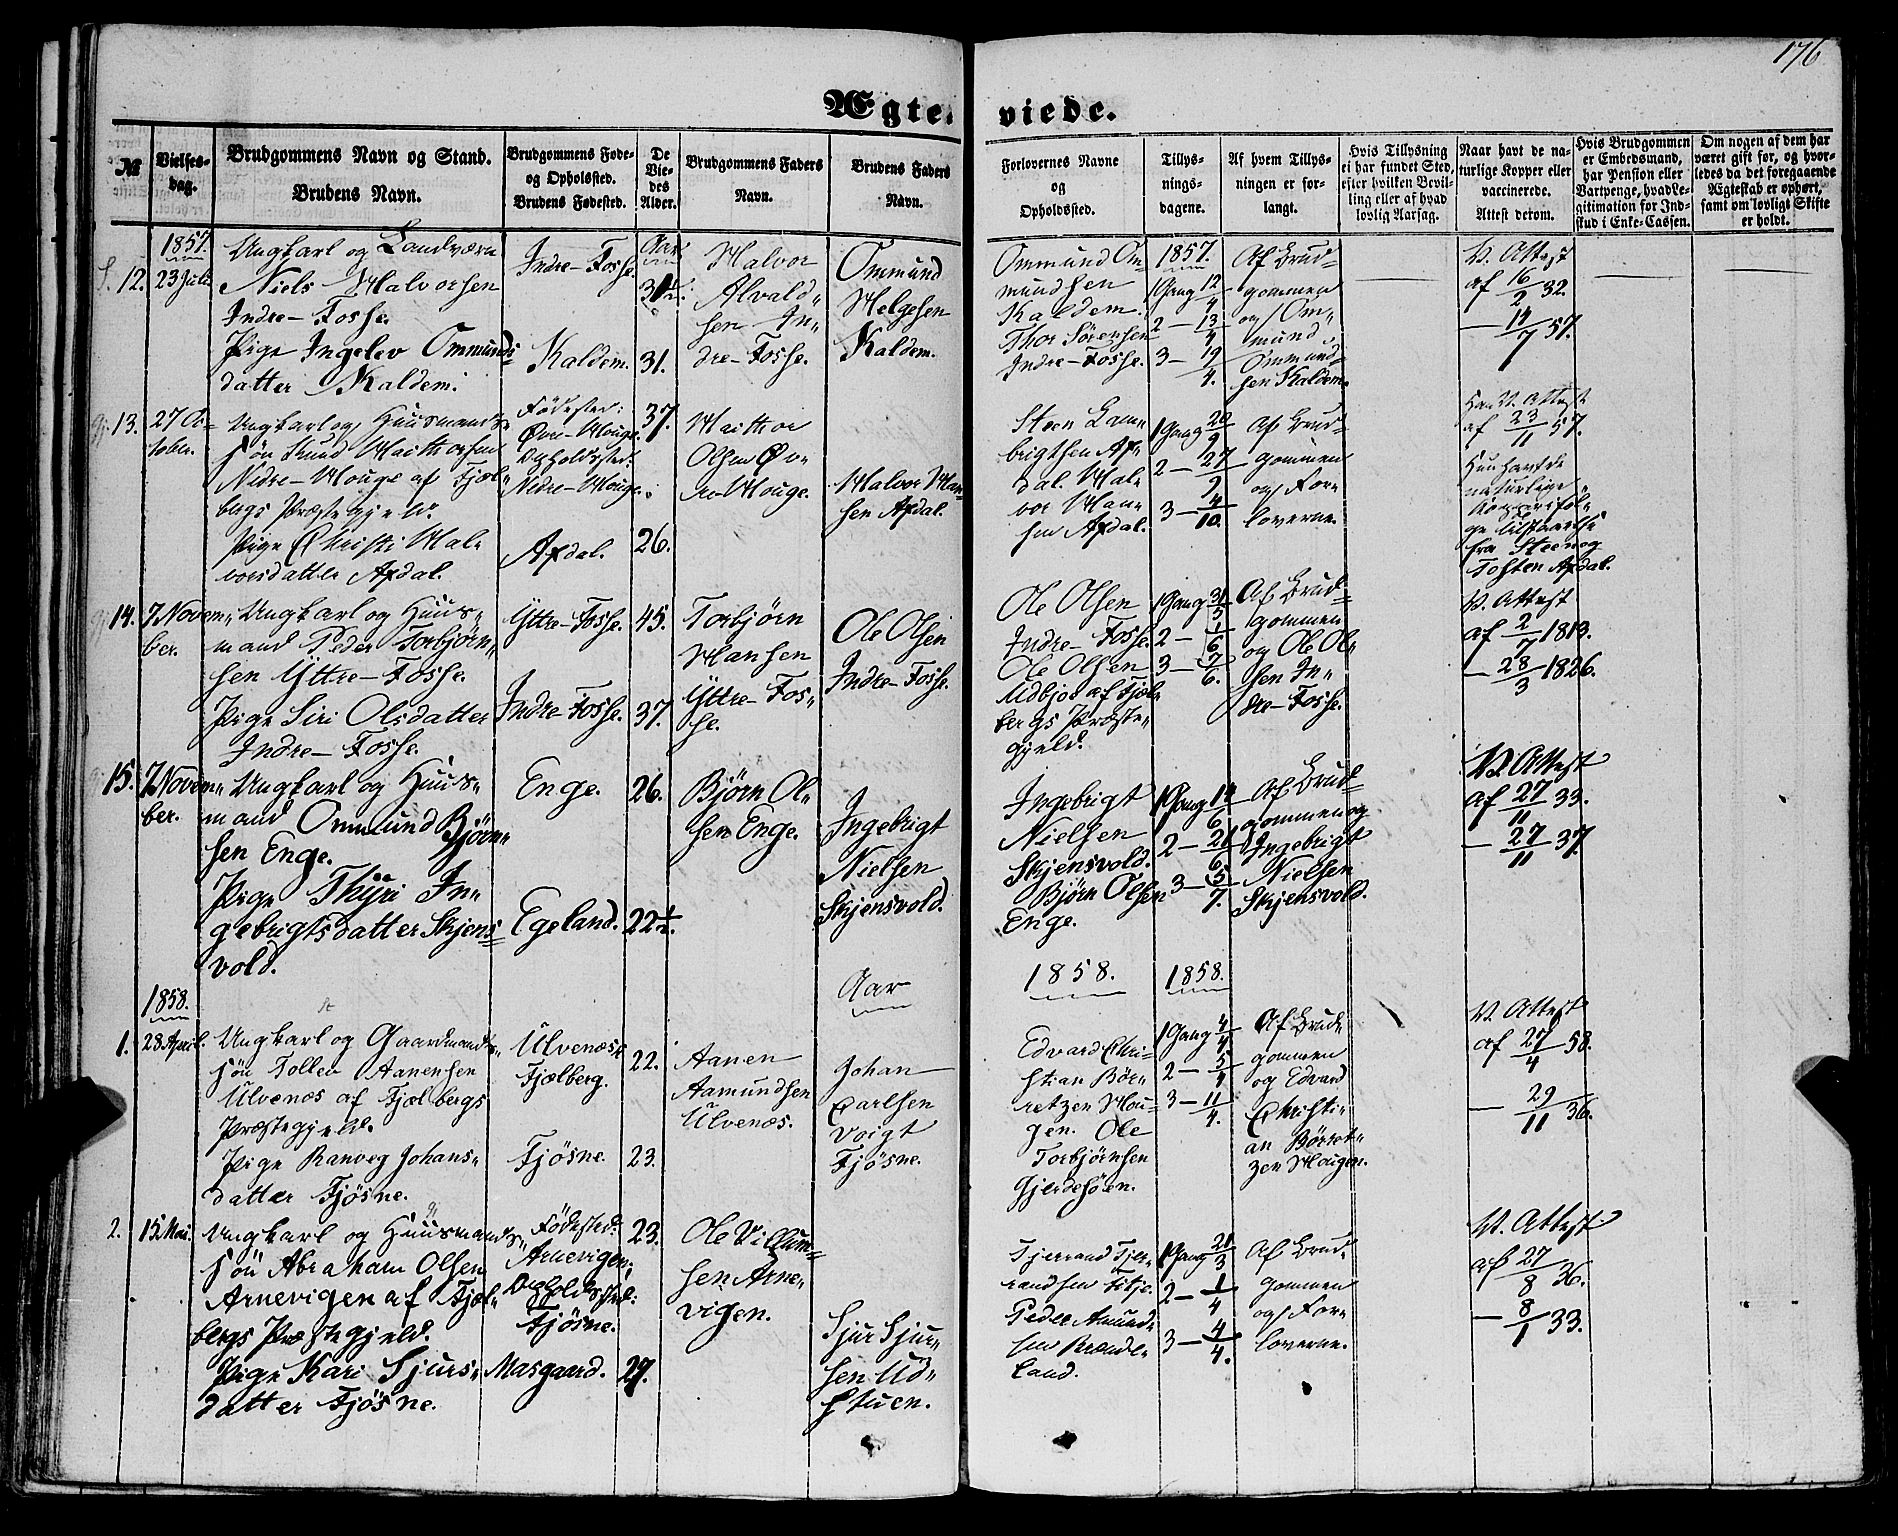 176
Ægteviede.
№
Vielses-
dag.
Brudgommens Navn og Stand.
Brudens Navn.
Brudgommens Føde-
og Opholdssted.
Brudens Fødested.
De
Vie-
des
Alder.
Brudgommens Faders
Navn.
Brudens Faders
Navn.
Forlovernes Navne
og
Opholdssted.
Tillys-
nings-
dagene.
Af hvem Tillys-
ningen er for-
langt.
Hvis Tillysning
ei har fundet Sted,
efter hvilken Bevil-
ling eller af hvad
lovlig Aarsag.
Naar havt de na-
turlige Kopper eller
vaccinerede.
Attest derom.
Hvis Brudgommen
er Embedsmand,
har Pension eller
Vartpenge, hvad Le-
gitimation for Ind-
skud i Enke-Cassen.
Om nogen af dem har
været gift før, og hvor-
ledes da det foregaaende
Ægteskab er ophørt,
samt om lovligt Skifte
er holdt.
1857.
12. 23 Juli
Ungkarl og Landværn
Niels Halvorsen
Indre-Fosse.
Pige Ingelev Ommunds-
datter Kaldem.
Indre-Fosse.
Kaldem.
Aar
31½.
31.
Halvor
Alvald-
sen In-
dre-Fosse.
Ommund
Helgesen
Kaldem.
Ommund Om-
mundsen
Kaldem.
Thor Sørensen
Indre-Fosse.
1857.
1 Gang 12/4
2 — 13/4
3 — 19/4.
Af Brud-
gommen
og Om-
mund
Ommund-
sen Kaldem.
V. Attest
af 16/2 32.
— 14/7 57.
13. 27 Oc-
tober.
Ungkarl og Huusmands-
søn Knud Haithorsen
Nedre-Houge af Fjæl-
bergs Præstegjeld.
Pige Christi Hal-
vorsdatter Axdal.
Fødested:
Øvre-Houge.
Opholdssted:
Nedre-Houge.
Axdal.
37.
26.
Haithor
Olsen Øv-
re-Houge.
Halvor Han-
sen Axdal.
Steen Lam-
brigtsen Ax-
dal. Hal-
vor Han-
sen Axdal.
1 Gang 20/9
2 — 27/9
3 — 4/10.
Af Brud-
gommen
og For-
loverne.
Han V. Attest
af 23/11 57.
Hun havt de
naturlige
Kopper iføl-
ge Tilstaaelse
fra Steen og
Tosten Axdal.
14. 7 Novem-
ber.
Ungkarl og Huus-
mand Peder Torbjørn-
sen Yttre-Fosse.
Pige Siri Olsdatter
Indre-Fosse.
Yttre-Fosse.
Indre-Fosse.
45.
37.
Torbjørn
Hansen
Yttre-Fos-
se.
Ole Olsen
Indre-Fosse.
Ole Olsen
Indre-Fosse.
Ole Olsen
Udbjoe af Fjæl-
bergs Præste-
gjeld.
1 Gang 31/5
2 — 1/6
3 — 7/6.
Af Brud-
gommen
og Ole Ol-
sen In-
dre-Fosse.
V. Attest
af 2/7 1813.
— 28/3 1826.
15. 7 Novem-
ber.
Ungkarl og Huus-
mand Ommund Bjørn-
sen Enge.
Pige Thyri In-
gebrigtsdatter Skjens-
vold.
Enge.
Egeland.
26.
22½.
Bjørn Ol-
sen Enge.
Ingebrigt
Nielsen
Skjensvold.
Ingebrigt
Nielsen
Skjensvold.
Bjørn Olsen
Enge.
1 Gang 14/6
2 — 21/6
3 — 5/7.
Af Brud-
gommen og
Ingebrigt
Nielsen
Skjensvold.
V. Attest
af 27/11 33.
— 27/11 37.
1858.
Aar
1858.
1858.
1. 28 April.
Ungkarl og Gaardmands-
søn Tollev Aanensen
Ulvenæs af Fjælbergs
Præstegjeld.
Pige Ranveg Johans-
datter Fjøsne.
Ulvenæs
Fjælberg.
Fjøsne.
22.
23.
Aanen
Aamundsen
Ulvenæs.
Johan
Carlsen
Voigt
Fjøsne.
Edvard Chri-
stian Bør-
retzen Hou-
gen. Ole
Torbjørnsen
Gjerdesøen.
1 Gang 4/4
2 — 5/4
3 — 11/4.
Af Brud-
gommen
og Edvard
Christi-
an Børret-
zen Hougen.
V. Attest
af 27/4 58.
— 29/11 36.
2. 15 Mai.
Ungkarl og Huusmands-
søn Abraham Olsen
Arnevigen af Fjæl-
bergs Præstegjeld.
Pige Kari Sjurs-
datter Fjøsne.
Fødested:
Arnevigen;
Opholdssted:
Fjøsne.
Masgaard.
23.
27.
Ole Villum-
sen Arne-
vigen.
Sjur Sjur-
sen Ud-
stuen.
Tjerrand Tjer-
randsen Fitje.
Peder Amund-
sen Brende-
land.
1 Gang 21/3
2 — 1/4
3 — 4/4.
Af Brud-
gommen
og For-
loverne.
V. Attest
af 27/8 36.
— 8/1 33.